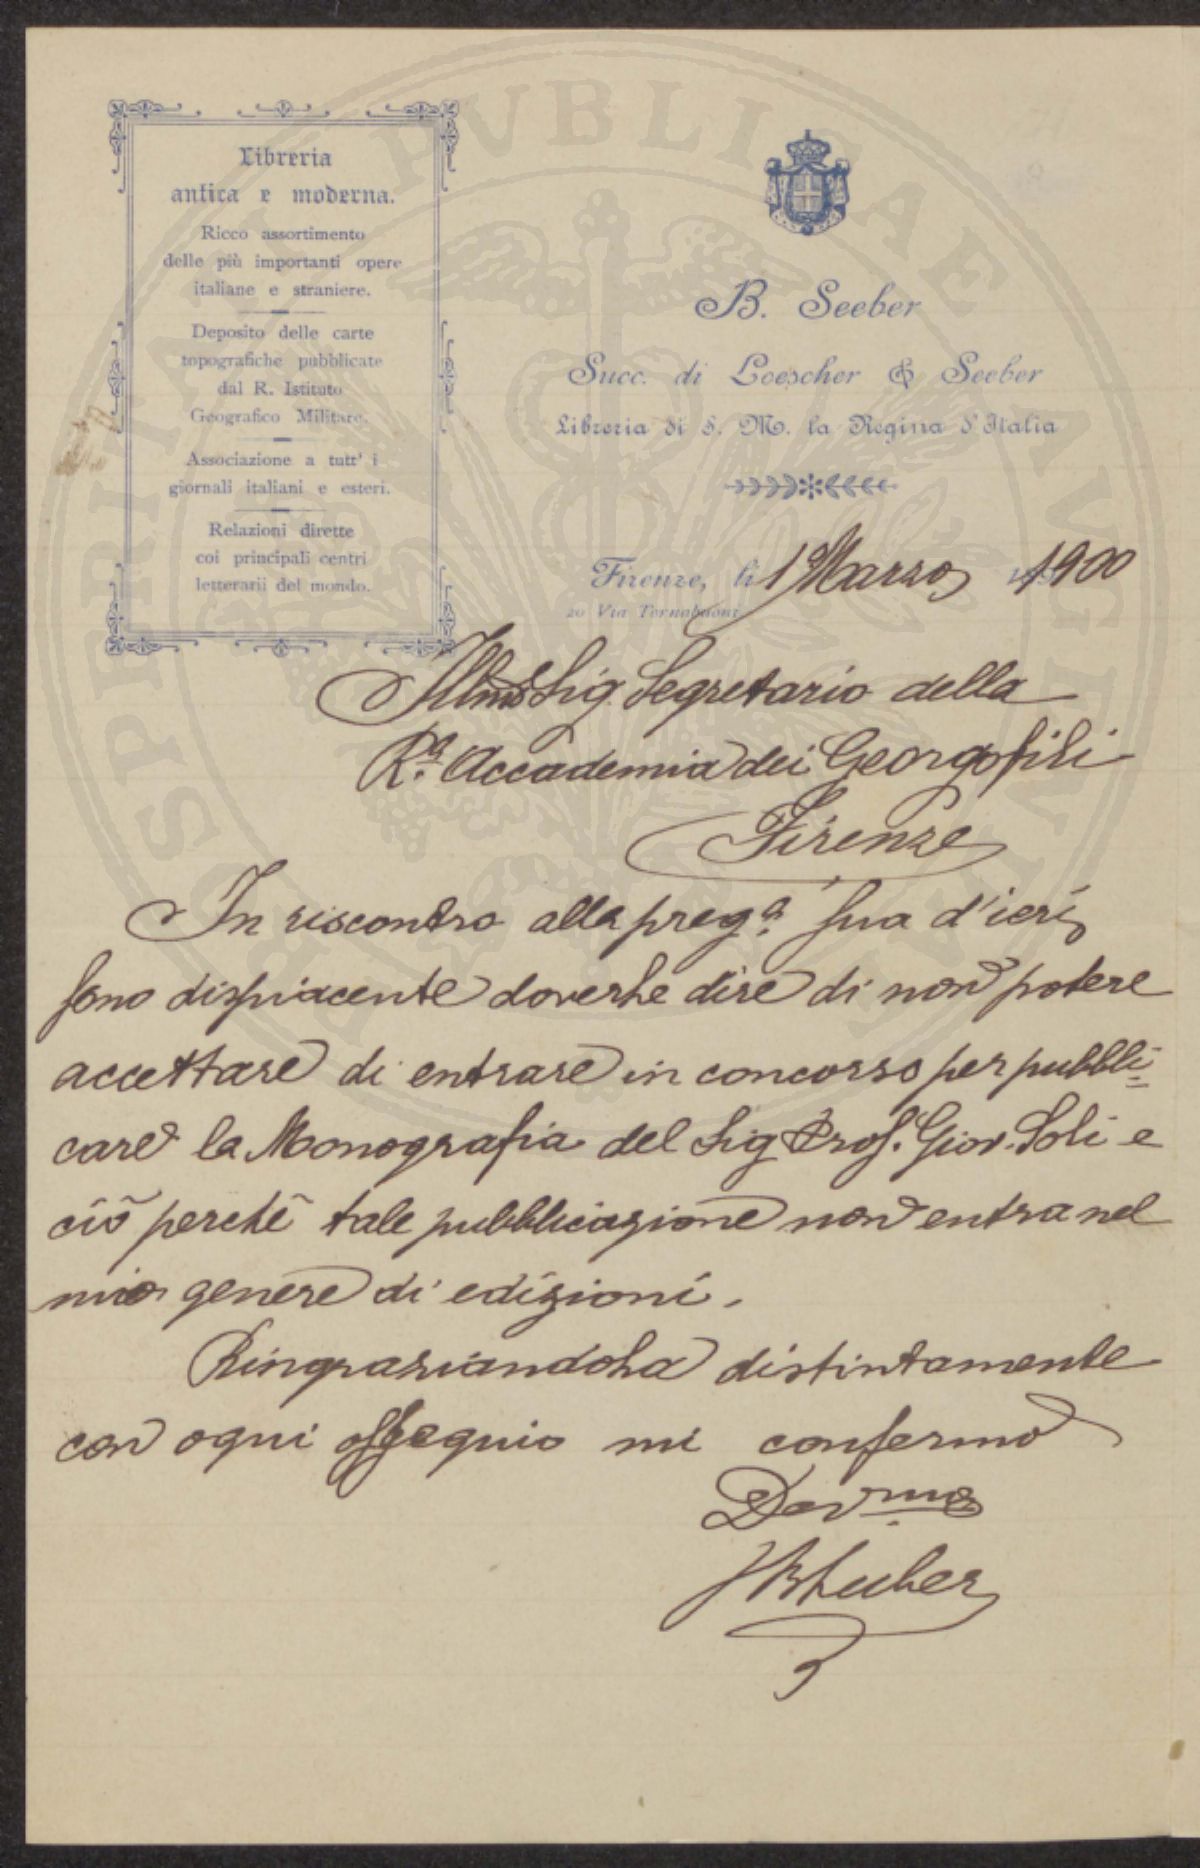 Libreria
antica e moderna.
Ricco assortimento
delle più importanti opere
italiane e straniere.
Deposito delle carte
topografiche pubblicate
dal R. Istituto
Geografico Militare.
Associazione a tutt' i
giornali italiani e esteri.
Relazioni dirette
coi principali centri
letterarii del mondo.
B. Seeber
Succ. di Loescher & Seeber
Libreria di S. M. la Regina d'Italia
Firenze, li 1 Marzo 1900
20 Via Tornabuoni
Illmo Sig. Segretario della
R.a Accademia dei Georgofili
Firenze
In riscontro alla preg.a sua d'ieri
sono dispiacente doverle dire di non potere
accettare di entrare in concorso per pubbli=
care la Monografia del Sig Prof. Giov. Soli e
ciò perchè tale pubblicazione non entra nel
mio genere di edizioni.
Ringraziandola distintamente
con ogni ossequio mi confermo
Dev.mo
BSeeber
PROSPERITATI PVBLICAE AVGENDAE